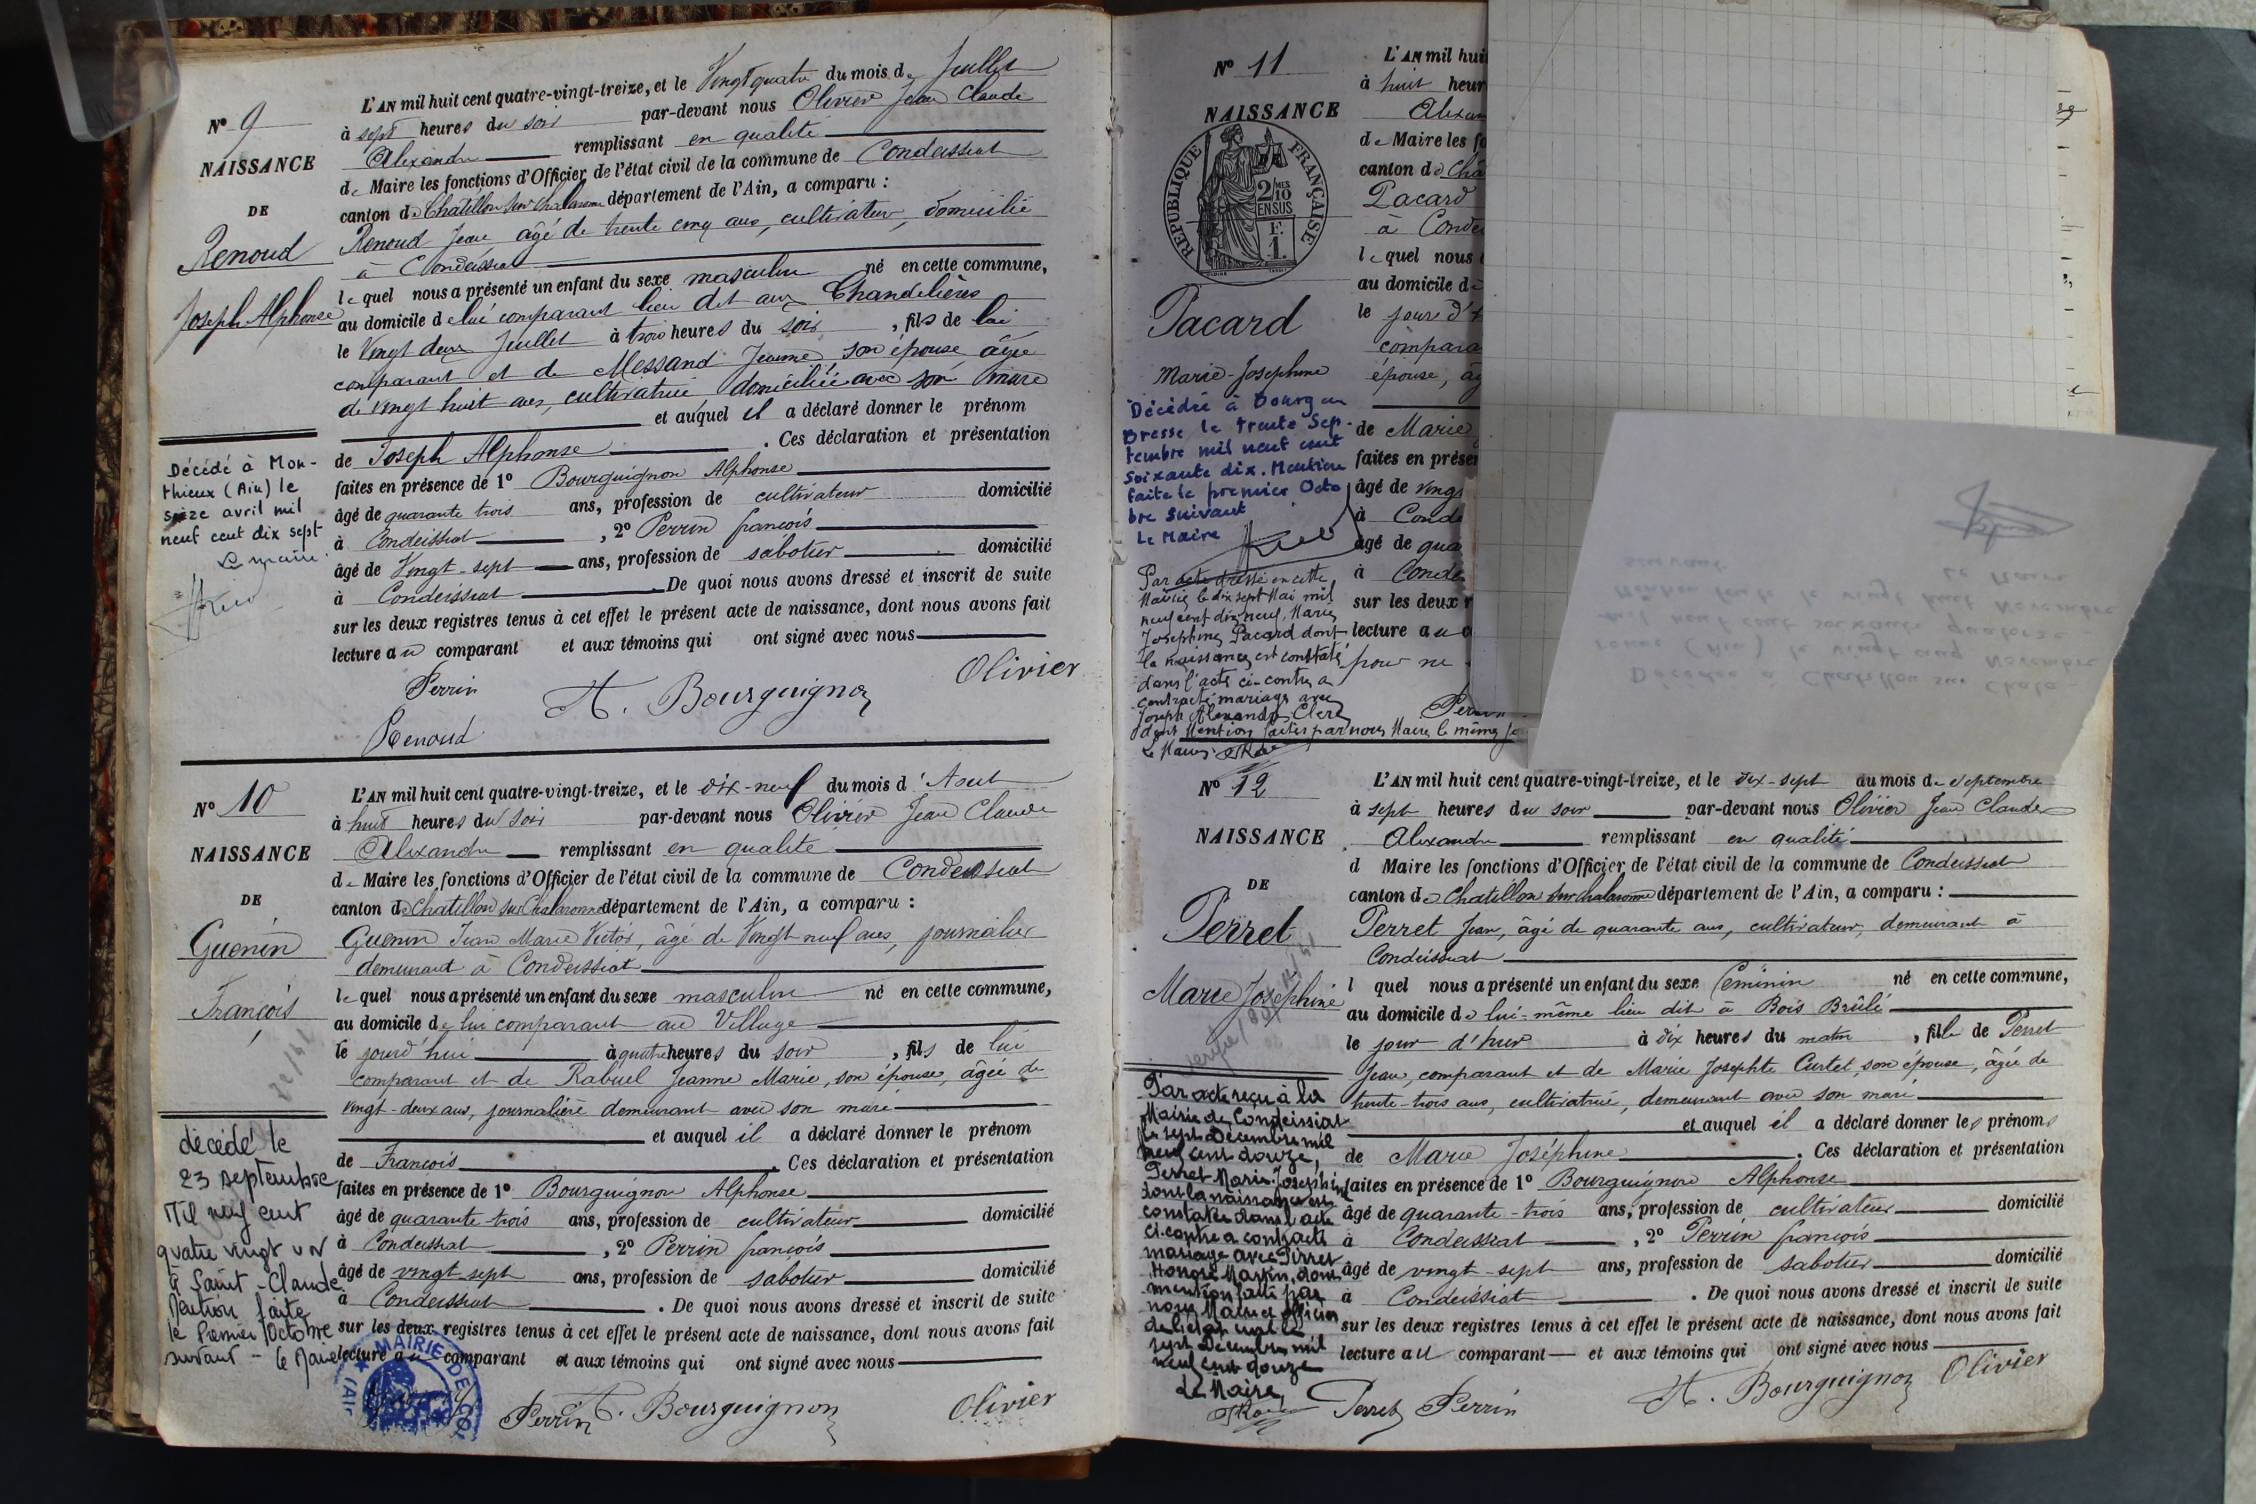 N° 9
NAISSANCE
DE
Renoud
Joseph Alphonse
L'AN mil huit cent quatre-vingt-treize, et le Vingt quatre du mois de Juillet
à sept heures du soir par-devant nous Olivier Jean Claude
Alexandre remplissant en qualité
de Maire les fonctions d'Officier de l'état civil de la commune de Condeissiat
canton de Châtillon sur Chalaronne département de l'Ain, a comparu :
Renoud Jean âgé de trente cinq ans, cultivateur, domicilié
à Condeissiat
le quel nous a présenté un enfant du sexe masculin né en cette commune,
au domicile de lui comparant lieu dit aux Chandelières
le Vingt deux Juillet à trois heures du soir, fils de lui
comparant et de Messand Jeanne, son épouse âgée
de vingt huit ans, cultivatrice domiciliée avec son mari
et auquel il a déclaré donner le prénom
de Joseph Alphonse. Ces déclaration et présentation
faites en présence de 1° Bourguignon Alphonse
âgé de quarante trois ans, profession de cultivateur domicilié
à Condeissiat, 2° Perrin françois
âgé de Vingt-sept ans, profession de sabotier domicilié
à Condeissiat. De quoi nous avons dressé et inscrit de suite
sur les deux registres tenus à cet effet le présent acte de naissance, dont nous avons fait
lecture au comparant et aux témoins qui ont signé avec nous
Perrin A. Bourguignon Olivier
Renoud
Décédé à Mon-
thieux (Ain) le
seize avril mil
neuf cent dix sept
Le maire
N° 10
NAISSANCE
DE
Guenin
François
L'AN mil huit cent quatre-vingt-treize, et le dix-neuf du mois d'Août
à huit heures du soir par-devant nous Olivier Jean Claude
Alexandre remplissant en qualité
de Maire les fonctions d'Officier de l'état civil de la commune de Condeissiat
canton de Chatillon sur Chalaronne département de l'Ain, a comparu :
Guenin Jean Marie Victor, âgé de Vingt-neuf ans, journalier
demeurant à Condeissiat
le quel nous a présenté un enfant du sexe masculin né en cette commune,
au domicile de lui comparant au Village
le jourd'hui à quatre heures du soir, fils de lui
comparant et de Rabuel Jeanne Marie, son épouse, âgée de
vingt-deux ans, journalière demeurant avec son mari
et auquel il a déclaré donner le prénom
de François. Ces déclaration et présentation
faites en présence de 1° Bourguignon Alphonse
âgé de quarante-trois ans, profession de cultivateur domicilié
à Condeissiat, 2° Perrin françois
âgé de vingt-sept ans, profession de sabotier domicilié
à Condeissiat. De quoi nous avons dressé et inscrit de suite
sur les deux registres tenus à cet effet le présent acte de naissance, dont nous avons fait
lecture au comparant et aux témoins qui ont signé avec nous
Perrin A. Bourguignon Olivier
décédé le
23 septembre
Mil neuf cent
quatre vingt un
à Saint-Claude
Mention faite
le Premier Octobre
suivant - Le Maire
MAIRIE DE CO
N° 11
NAISSANCE
RÉPUBLIQUE FRANÇAISE
2/10 MES
EN SUS
F.
1.
Pacard
Marie-Josephine
L'AN mil hui
à huit heur
Alexan
de Maire les fo
canton de Châ
Pacard
à Conde
le quel nous
au domicile de
le jour d'
compara
épouse, âg
de Marie
faites en présen
âgé de vingt
à Conde
âgé de qua
à Conde
sur les deux r
lecture au c
pour ne
Décédée à Bourg en
Bresse le trente Sep-
tembre mil neuf cent
soixante dix. Mention
faite le premier Octo
bre suivant
Le Maire
Par acte dressé en cette
Mairie le dix sept Mai mil
neuf cent dix neuf, Marie
Josephine Pacard dont
la naissance est constatée
dans l'acte ci-contre a
contracté mariage avec
Joseph Alexandre Clerc
dont Mention faite par nous Maire le même jo
Le Maire
Décédée à Chatillon sur Chala-
ronne (Ain) le vingt cinq Novembre
mil neuf cent soixante quatorze
Mention faite le vingt huit Novembre
suivant
Le Maire
N° 12
NAISSANCE
DE
Perret
Marie Joséphine
L'AN mil huit cent quatre-vingt-treize, et le dix-sept du mois de septembre
à sept heures du soir par-devant nous Olivier Jean Claude
Alexandre remplissant en qualité
d Maire les fonctions d'Officier de l'état civil de la commune de Condeissiat
canton de Chatillon sur chalaronne département de l'Ain, a comparu :
Perret Jean, âgé de quarante ans, cultivateur, demeurant à
Condeissiat
l quel nous a présenté un enfant du sexe féminin né en cette commune,
au domicile de lui-même lieu dit à Bois Brûlé
le jour d'hier à dix heures du matin, fille de Perret
Jean, comparant et de Marie Josephte Curtet, son épouse, âgée de
trente-trois ans, cultivatrice, demeurant avec son mari
et auquel il a déclaré donner les prénoms
de Marie Joséphine. Ces déclaration et présentation
faites en présence de 1° Bourguignon Alphonse
âgé de quarante-trois ans, profession de cultivateur domicilié
à Condeissiat, 2° Perrin françois
âgé de vingt-sept ans, profession de sabotier domicilié
à Condeissiat. De quoi nous avons dressé et inscrit de suite
sur les deux registres tenus à cet effet le présent acte de naissance, dont nous avons fait
lecture au comparant et aux témoins qui ont signé avec nous
Perret Perrin A. Bourguignon Olivier
Par acte reçu à la
Mairie de Condeissiat
le sept Décembre mil
neuf cent douze,
Perret Marie-Joséphine
dont la naissance est
constatée dans l'acte
ci-contre a contracté
mariage avec Perret
Honoré Martin, dont
mention faite par
nous Maire et officier
de l'état civil le
sept Décembre mil
neuf cent douze
Le Maire,